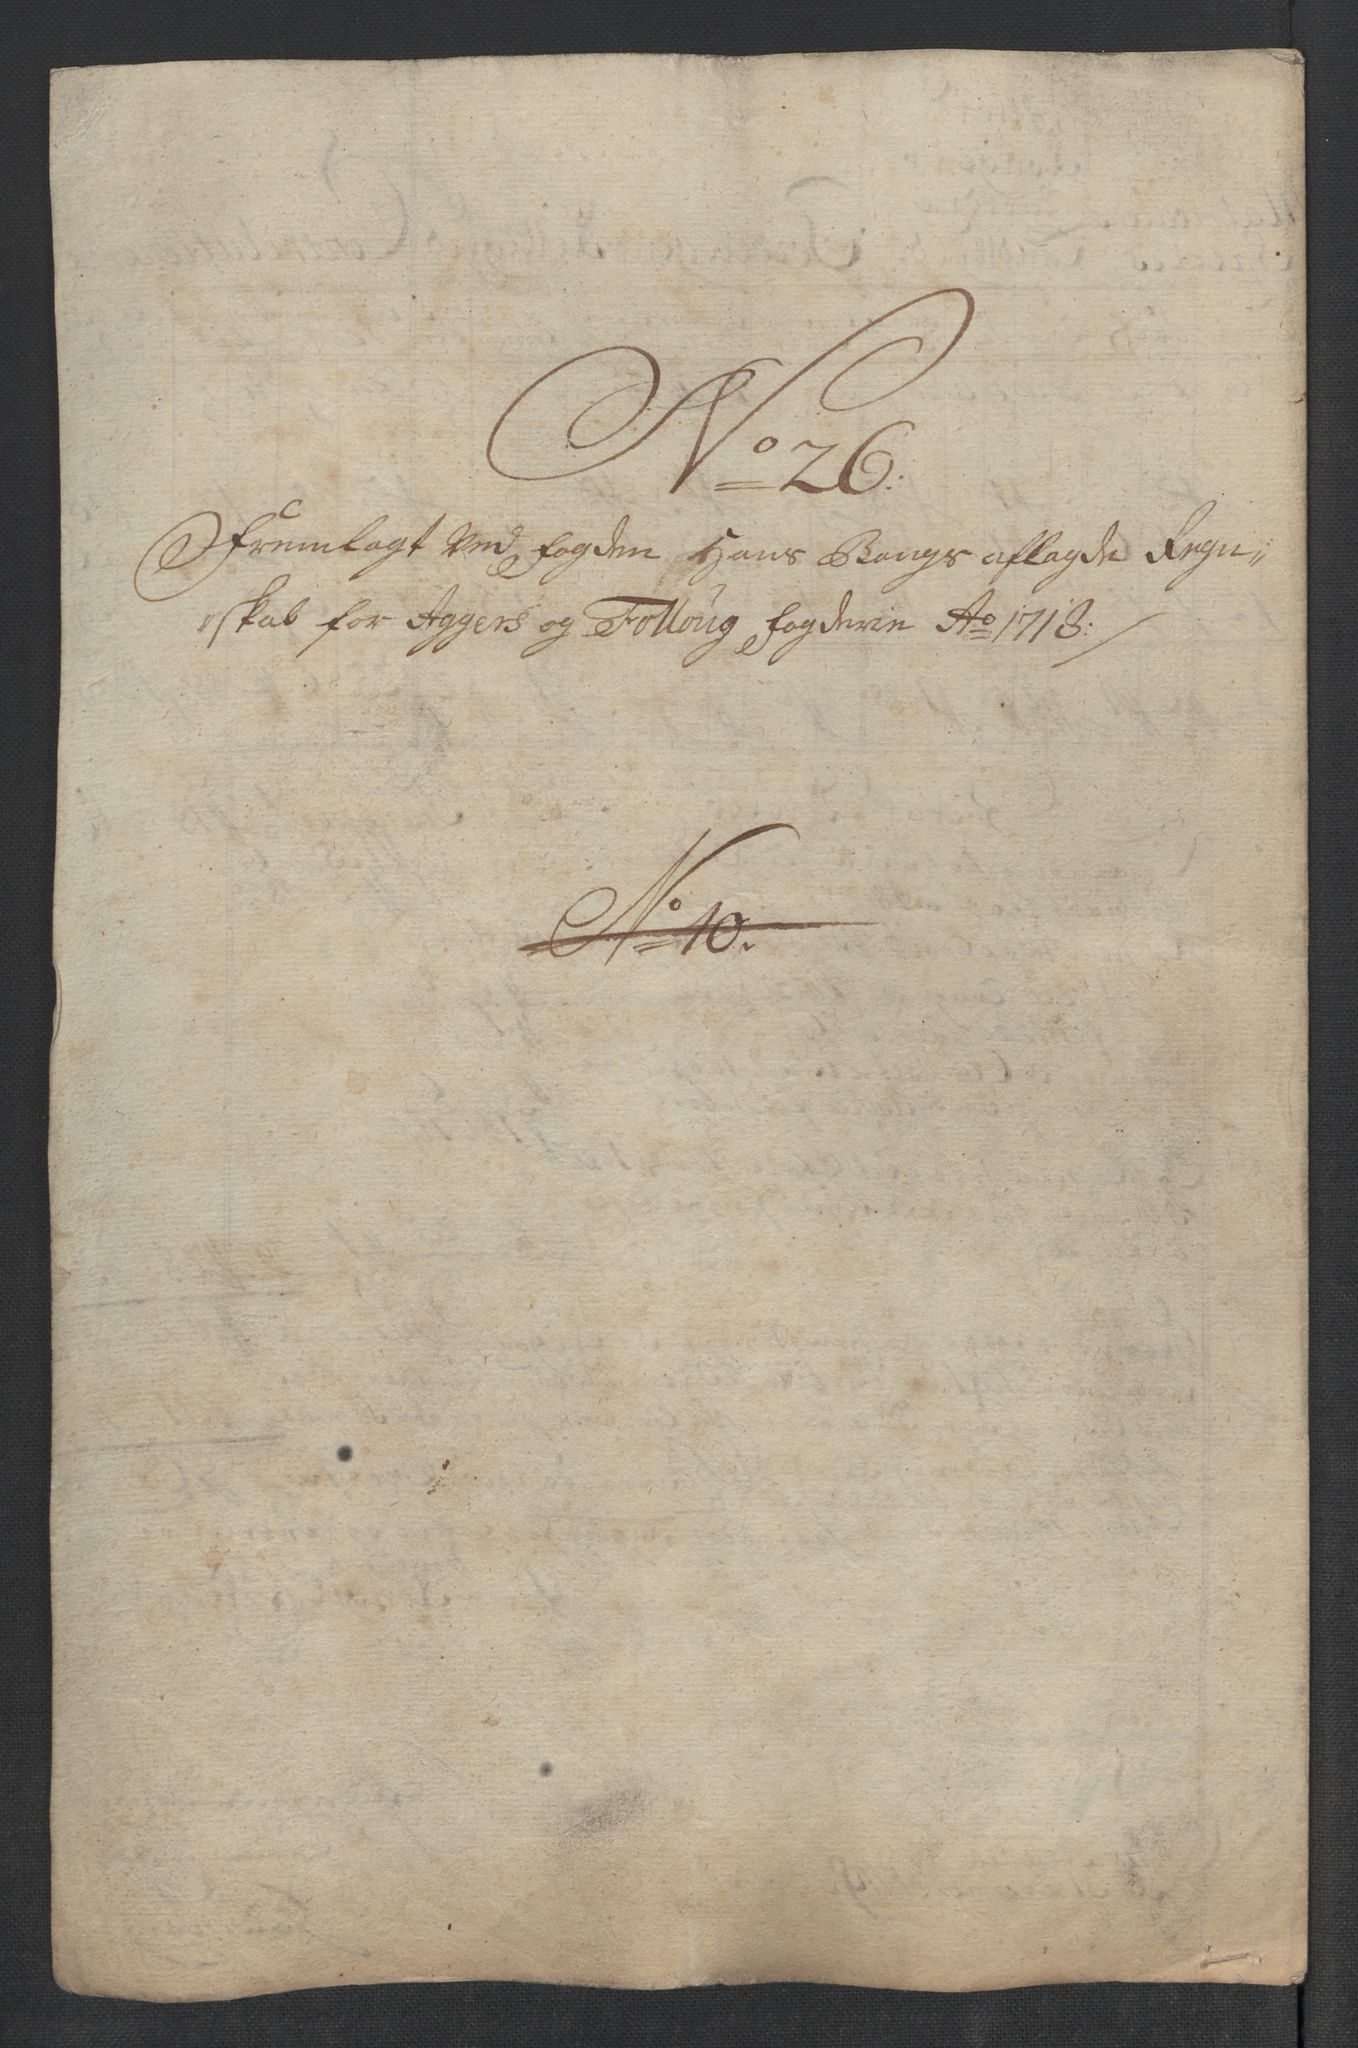 No 26:
Fremlagt Ved fogden Hans Bangs aflagde Regn=
=skab for Aggers og Folloúg fogderie Ao 1718:
No 10.